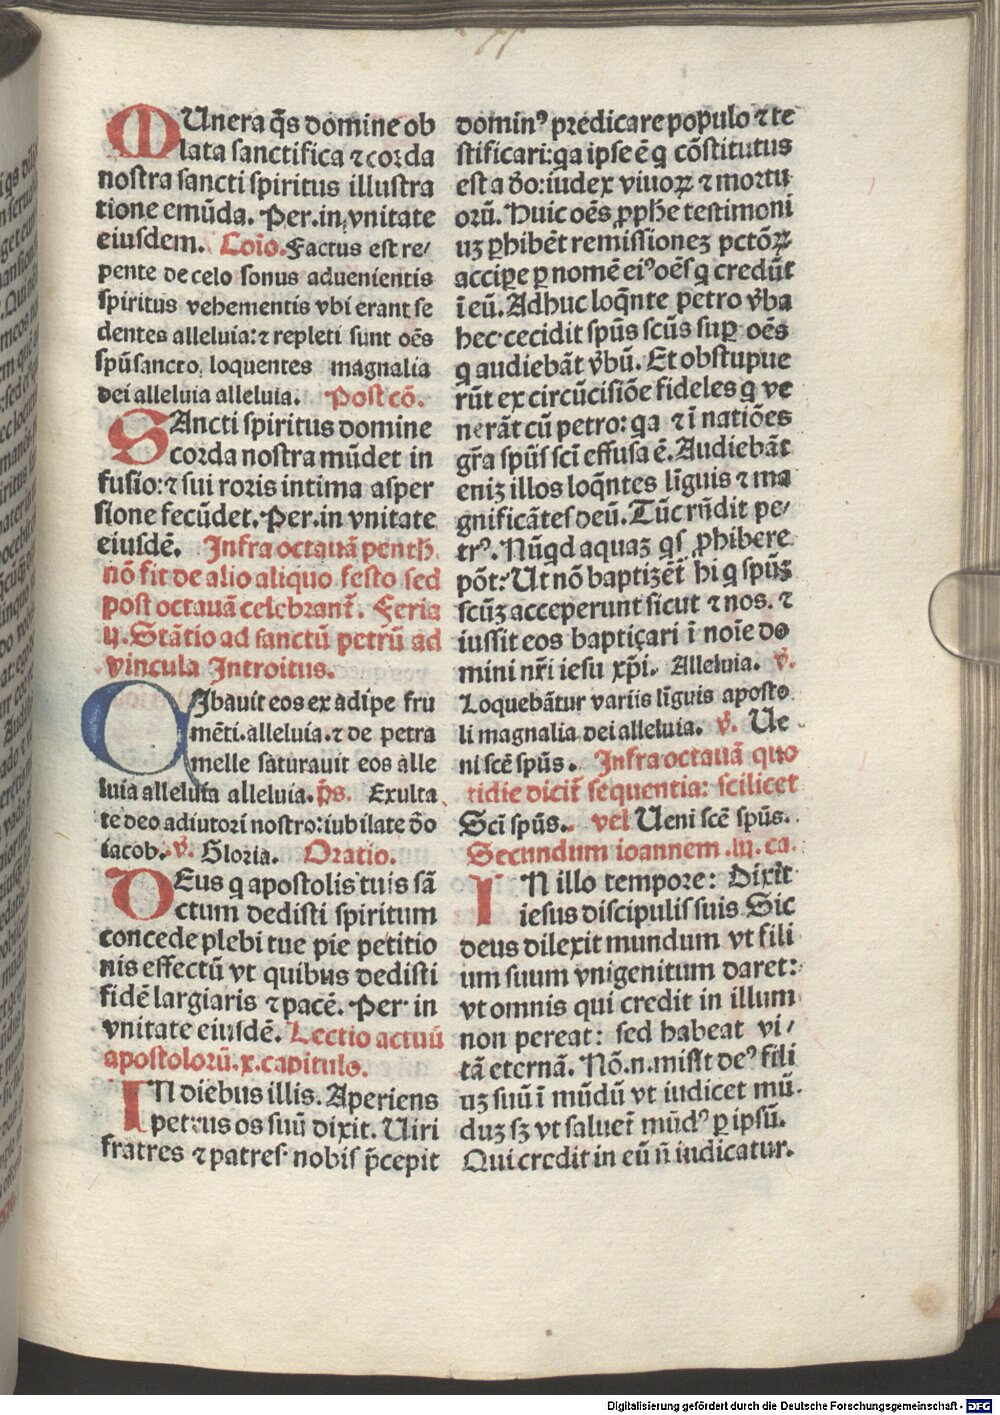 MUnera q̄s domine ob
lata sanctifica ⁊ corda
nostra sancti spiritus illustra
tione emūda. Per. in vnitate
eiusdem. Coīo. Factus est re/
pente de celo sonus aduenientis
spiritus vehementis vbi erant se
dentes alleluia: ⁊ repleti sunt oēs
spū sancto, loquentes magnalia
dei alleluia alleluia. Post cō.
SAncti spiritus domine
corda nostra mūdet in
fusio: ⁊ sui roris intima asper
sione fecūdet. Per. in vnitate
eiusdē. Infra octauā penth.
nō fit de alio aliquo festo sed
post octauā celebrant̄. Feria
ij. Stātio ad sanctū petrū ad
vincula Introitus.
CIbauit eos ex adipe fru
mēti. alleluia. ⁊ de petra
melle saturauit eos alle
luia alleluia alleluia. p̄s. Exulta
te deo adiutori nostro: iubilate dō
iacob. v̄. Gloria. Oratio.
DEus q apostolis tuis sā
ctum dedisti spiritum
concede plebi tue pie petitio
nis effectū vt quibus dedisti
fidē largiaris ⁊ pacē. Per. in
vnitate eiusdē. Lectio actuū
apostolorū. x. capitulo.
IN diebus illis. Aperiens
petrus os suū dixit. Uiri
fratres ⁊ patres nobis p̄cepit
dominꝰ predicare populo ⁊ te
stificari: qa ipse ē q cōstitutus
est a dō: iudex viuoꝝ ⁊ mortu
orū. Huic oēs ꝓphe testimoni
uꝫ ꝑhibēt remissionez pctōꝝ
accipe ꝑ nomē eiꝰ oēs q credūt
ī eū. Adhuc loq̄nte petro v̄ba
hec cecidit spūs scūs suꝑ oēs
q audiebāt v̄bū. Et obstupue
rūt ex circūcisiōe fideles q ve
nerāt cū petro: qa ⁊ ī natiōes
gr̄a spūs scī effusa ē. Audiebāt
eniꝫ illos loq̄ntes līguis ⁊ ma
gnificātes deū. Tūc rn̄dit pe/
trꝰ. Nūqd aquaꝫ qs ꝓhibere
pōt: Ut nō baptizēt̄ hi q spūꝫ
scūꝫ acceperunt sicut ⁊ nos. ⁊
iussit eos baptiçari ī noīe do
mini nr̄i iesu xp̄i. Alleluia. v̄.
Loquebātur variis līguis aposto
li magnalia dei alleluia. v̄. Ue
ni scē spūs. Infra octauā quo
tidie dicit̄ sequentia: scilicet
Scī spūs. vel Ueni scē spūs.
Secundum ioannem .iij. ca.
IN illo tempore: Dixit
iesus discipulis suis Sic
deus dilexit mundum vt fili
um suum vnigenitum daret:
vt omnis qui credit in illum
non pereat: sed habeat vi/
tā eternā. Nō .n. misit deꝰ fili
uꝫ suū ī mūdū vt iudicet mū
duꝫ sꝫ vt saluet̄ mūdꝰ ꝑ ipsū.
Qui credit in eū n̄ iudicatur.
Digitalisierung gefördert durch die Deutsche Forschungsgemeinschaft - DFG